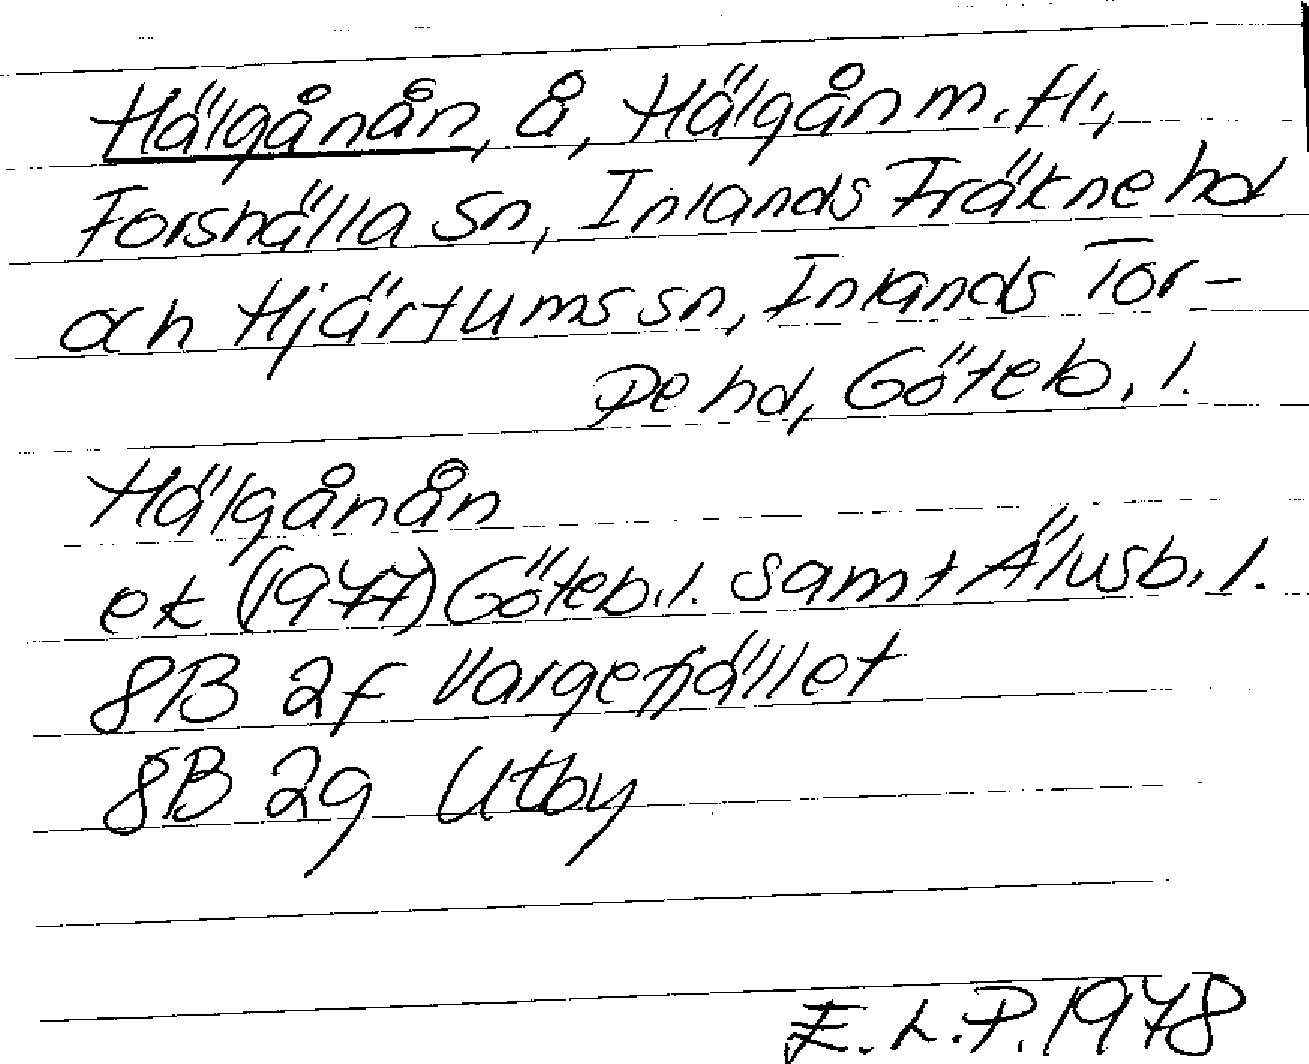 Hälgånån, å, Hälgån m.fl.,
Forshälla sn, Inlands Fräkne hd
och Hjärtums sn, Inlands Tor-
pe hd, Göteb. l.
Hälgånån
ek (1977) Göteb. l. samt Älvsb. l.
8B 2f Vargefjället
8B 2g Utby
E.L.P. 1978